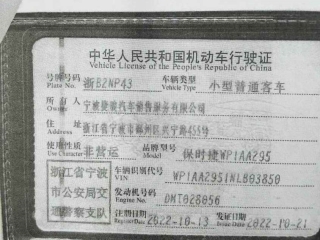 中华人民共和国机动车行驶证
Vehicle License of the People's Republic of China
号牌号码 浙B2NP43 车辆类型 小型普通客车
Plate No. Vehicle Type
所有人 宁波捷骏汽车销售服务有限公司
Owner
住址 浙江省宁波市鄞州区兴宁路455号
Address
使用性质 非营运 品牌型号 保时捷WP1AA295
Use Character Model
浙江省宁波
市公安局交
通警察支队
车辆识别代号 WP1AA2951NLB03850
VIN
发动机号码 DMT028056
Engine No.
注册日期 2022-10-13 发证日期 2022-10-21
Register Date Issue Date